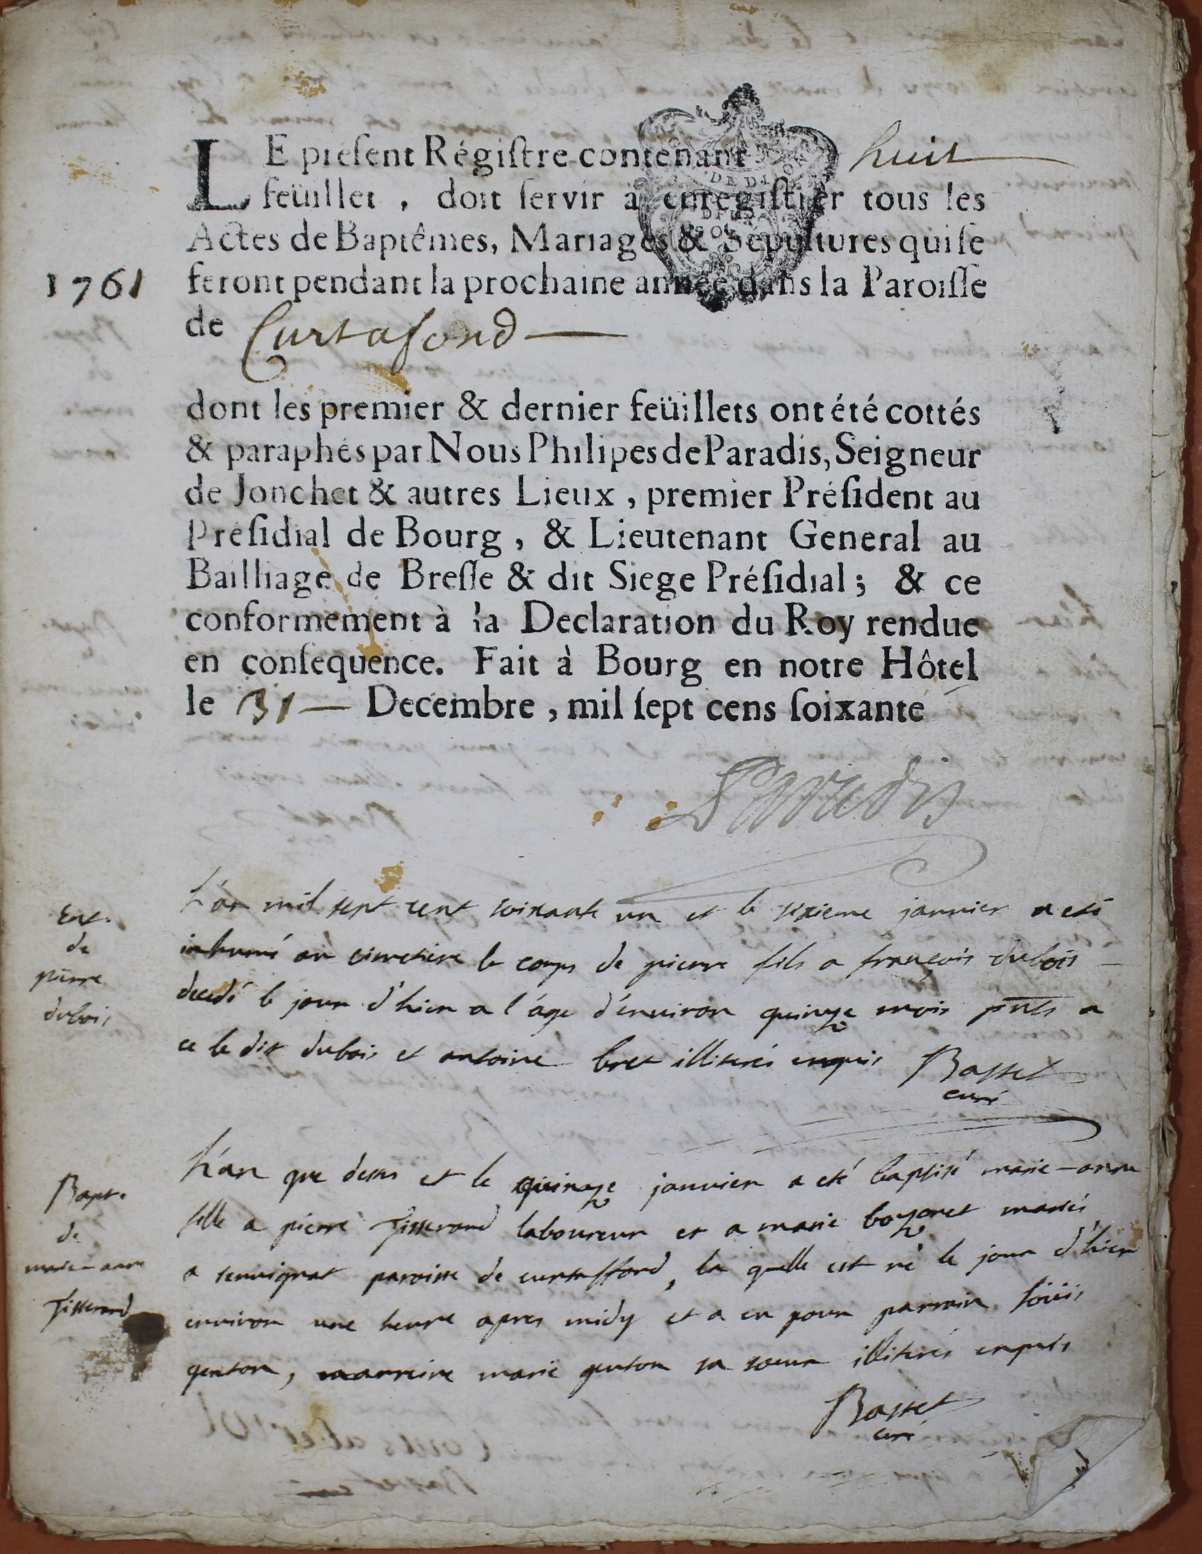 LE present Régistre contenant huit
feüillet , doit servir à enregistrer tous les
Actes de Baptêmes, Mariages & Sépultures qui se
1761 feront pendant la prochaine année dans la Paroisse
de Curtafond
dont les premier & dernier feüillets ont été cottés
& paraphés par Nous Philipes de Paradis, Seigneur
de Jonchet & autres Lieux , premier Président au
Présidial de Bourg , & Lieutenant General au
Bailliage de Bresse & dit Siege Présidial ; & ce
conformement à la Declaration du Roy rendue
en consequence. Fait à Bourg en notre Hôtel
le 31 Decembre , mil sept cens soixante
Paradis
Ent.
de
pierre
dubois
L'an mil sept cent soixante un et le sixieme janvier a eté
inhumé au cimetiere le corps de pierre fils a françois dubois
decedé le jour d'hier a l'âge d'environ quinze mois pnts a
ce le dit dubois et antoine bret illiterés enquis Basset
curé
Bapt.
de
marie-anne
Tisserand
L'an que dessus et le quinze janvier a eté baptisé marie-anne
fille a pierre Tisserand laboureur et a marie bozonet mariés
a senvignat paroisse de curtaffond, la quelle est né le jour d'hier
environ une heure apres midy et a eu pour parrain loüis
genton, marreine marie genton sa soeur illiterés enquis
Basset
curé